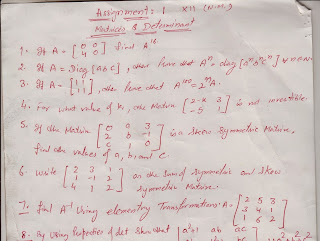 Assignment: 1 XII (N.M.)
Matrices & Determinant
1. If A = [0 0; 4 0] find A¹⁶
2. If A = Diag [a b c], then prove that Aⁿ = diag [aⁿ bⁿ cⁿ] ∀ n∈N
3. If A = [1 1; 1 1], then prove that A¹⁰⁰ = 2⁹⁹A.
4. For what value of k, the Matrix [2-k 3; -5 1] is not invertible.
5. If the Matrix [0 a 3; 2 b -1; c 1 0] is a Skew Symmetric Matrix,
find the values of a, b, and c.
6. Write [2 3 1; 1 -1 2; 4 1 2] as the sum of symmetric and skew
symmetric Matrix.
7. find A⁻¹ Using elementary Transformations: A = [2 5 3; 3 4 1; 1 6 2]
8. By Using Properties of det. Show that a²+1 ab ac